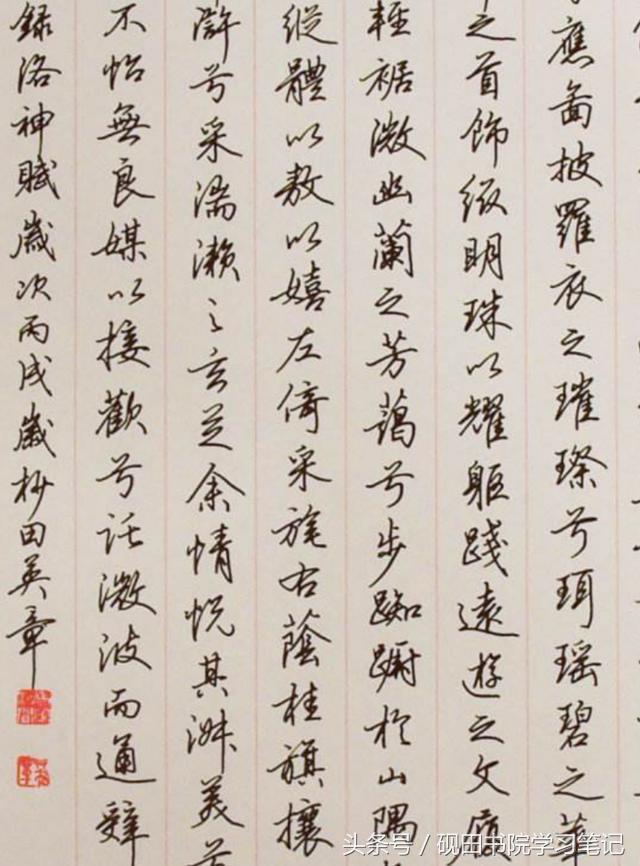 應啚披羅衣之璀璨兮珥瑤碧之
之首飾綴明珠以耀軀踐遠遊之文
輕裾微幽蘭之芳藹兮步踟躕於山隅
縱體以敖以嬉左倚采旄右蔭桂旗攘
滸兮采湍瀨之玄芝余情悅其淑美兮
不怡無良媒以接歡兮託微波而通辭
錄洛神賦歲次丙戌歲杪田英章
头条号 / 砚田书院学习笔记